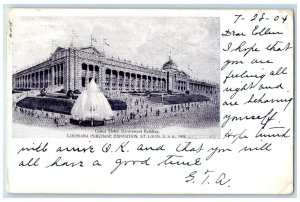 7-28-04
Dear Ellen
I hope that
you are
feeling all
right and
are behaving
yourself.
Hope
will arrive O.K. and that you will
all have a good time
G.T.A.
United States Government Building.
LOUISIANA PURCHASE EXPOSITION, ST. LOUIS, U.S.A., 1904.